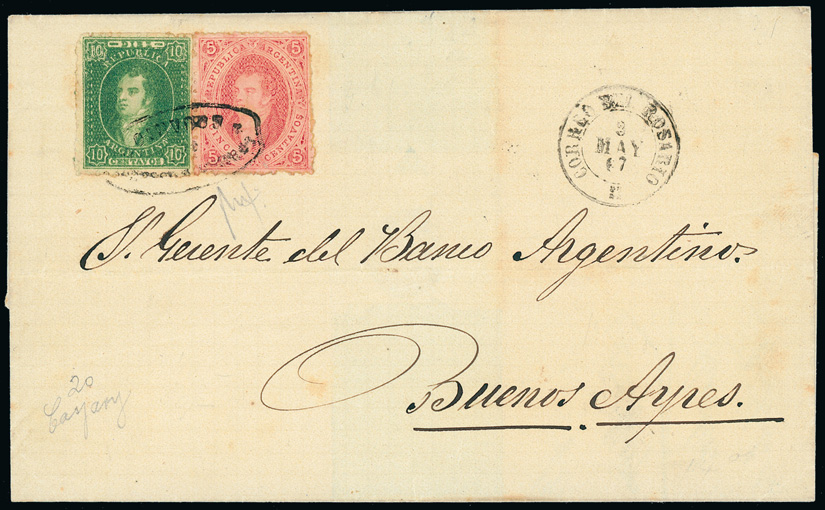 10 10
REPUBLICA
ARGENTINA
10 10
CENTAVOS
5 5
REPUBLICA ARGENTINA
5 5
CENTAVOS
CORREO DEL ROSARIO
MAY
67
Sr. Gerente del Banco Argentino.
Buenos Ayres.
20